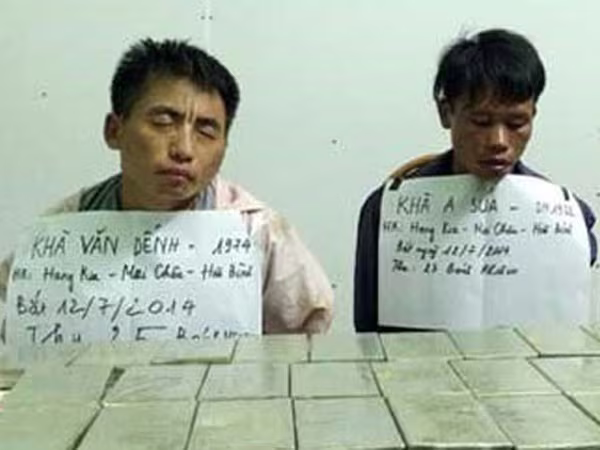 KHÀ VĂN DÊNH - 1974
HK: Hang Kia - Mai Châu - Hoà Bình
Bắt 12/7/2014
Thu 25
KHÀ A SUA -
HK: Hang Kia - Mai Châu - Hoà Bình
Bắt ngày 12/7/2014
Thu: 25 Bánh